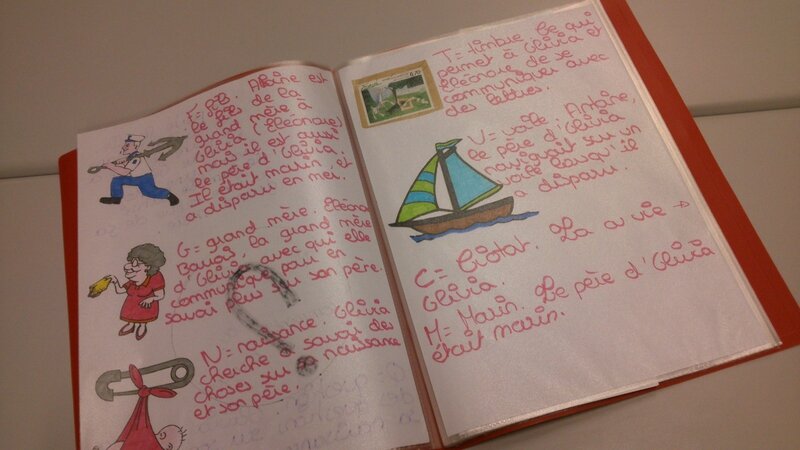 F = fils. Antoine est
le fils de la
grand mère à
Olivia (Eléonore)
mais il est aussi
le père d'Olivia
Il était marin et
a disparu en mer.
G = grand mère. Eléonore
Bavois la grand mère
d'Olivia avec qui elle
communique pour en
savoir plus sur son père.
N = naissance. Olivia
cherche à savoir des
choses sur sa naissance
et son père.
T = timbre. Ce qui
permet à Olivia et
Eléonore de se
communiquer avec
des lettres.
V = voile Antoine,
le père d'Olivia
naviguait sur un
voile lorsqu'il
a disparu.
C = Ciotat. La ou vie →
Olivia.
M = Marin. Le père d'Olivia
était marin.